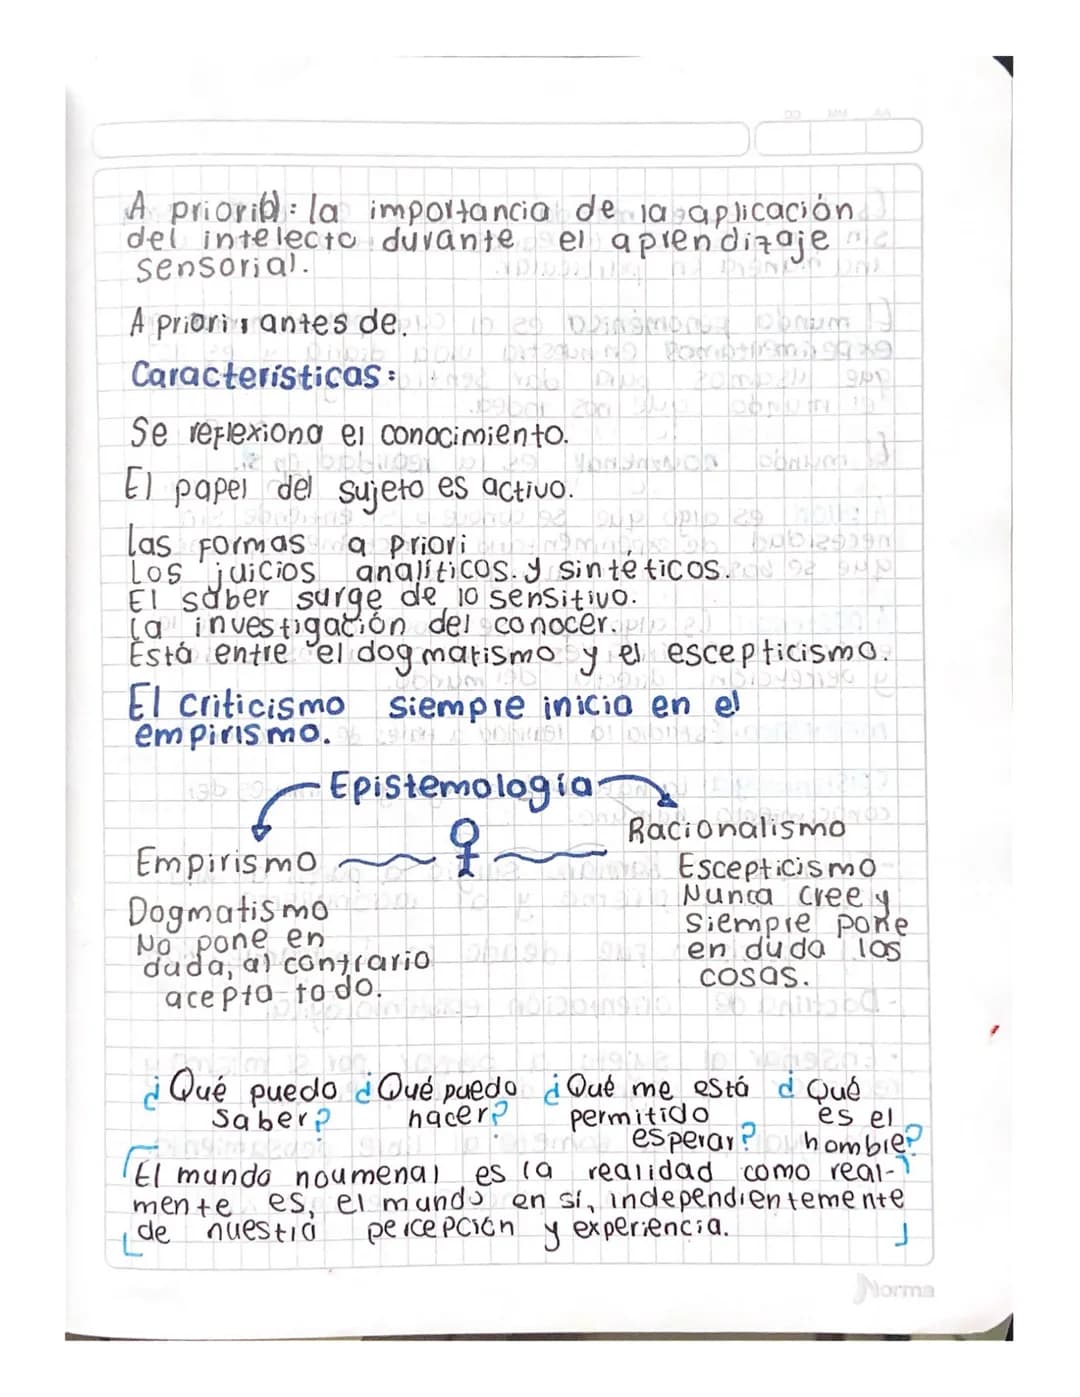 A priori: la importancia de la aplicación
del intelecto durante el aprendizaje
sensorial.
A priori: antes de.
Características:
Se reflexiona el conocimiento.
El papel del sujeto es activo.
Las formas a priori
Los juicios analíticos y sintéticos.
El saber surge de lo sensitivo.
La investigación del conocer.
Está entre el dogmatismo y el escepticismo.
El criticismo siempre inicia en el
empirismo.
Epistemología
Empirismo
Dogmatismo
No pone en
duda, al contrario
acepta todo.
Racionalismo
Escepticismo
Nunca cree y
siempre pone
en duda las
cosas.
¿Qué puedo
saber?
¿Qué puedo
hacer?
¿Qué me está
permitido
esperar?
¿Qué
es el
hombre?
El mundo noumenal es la realidad como real-
mente es, el mundo en sí, independientemente
de nuestra percepción y experiencia.
Norma